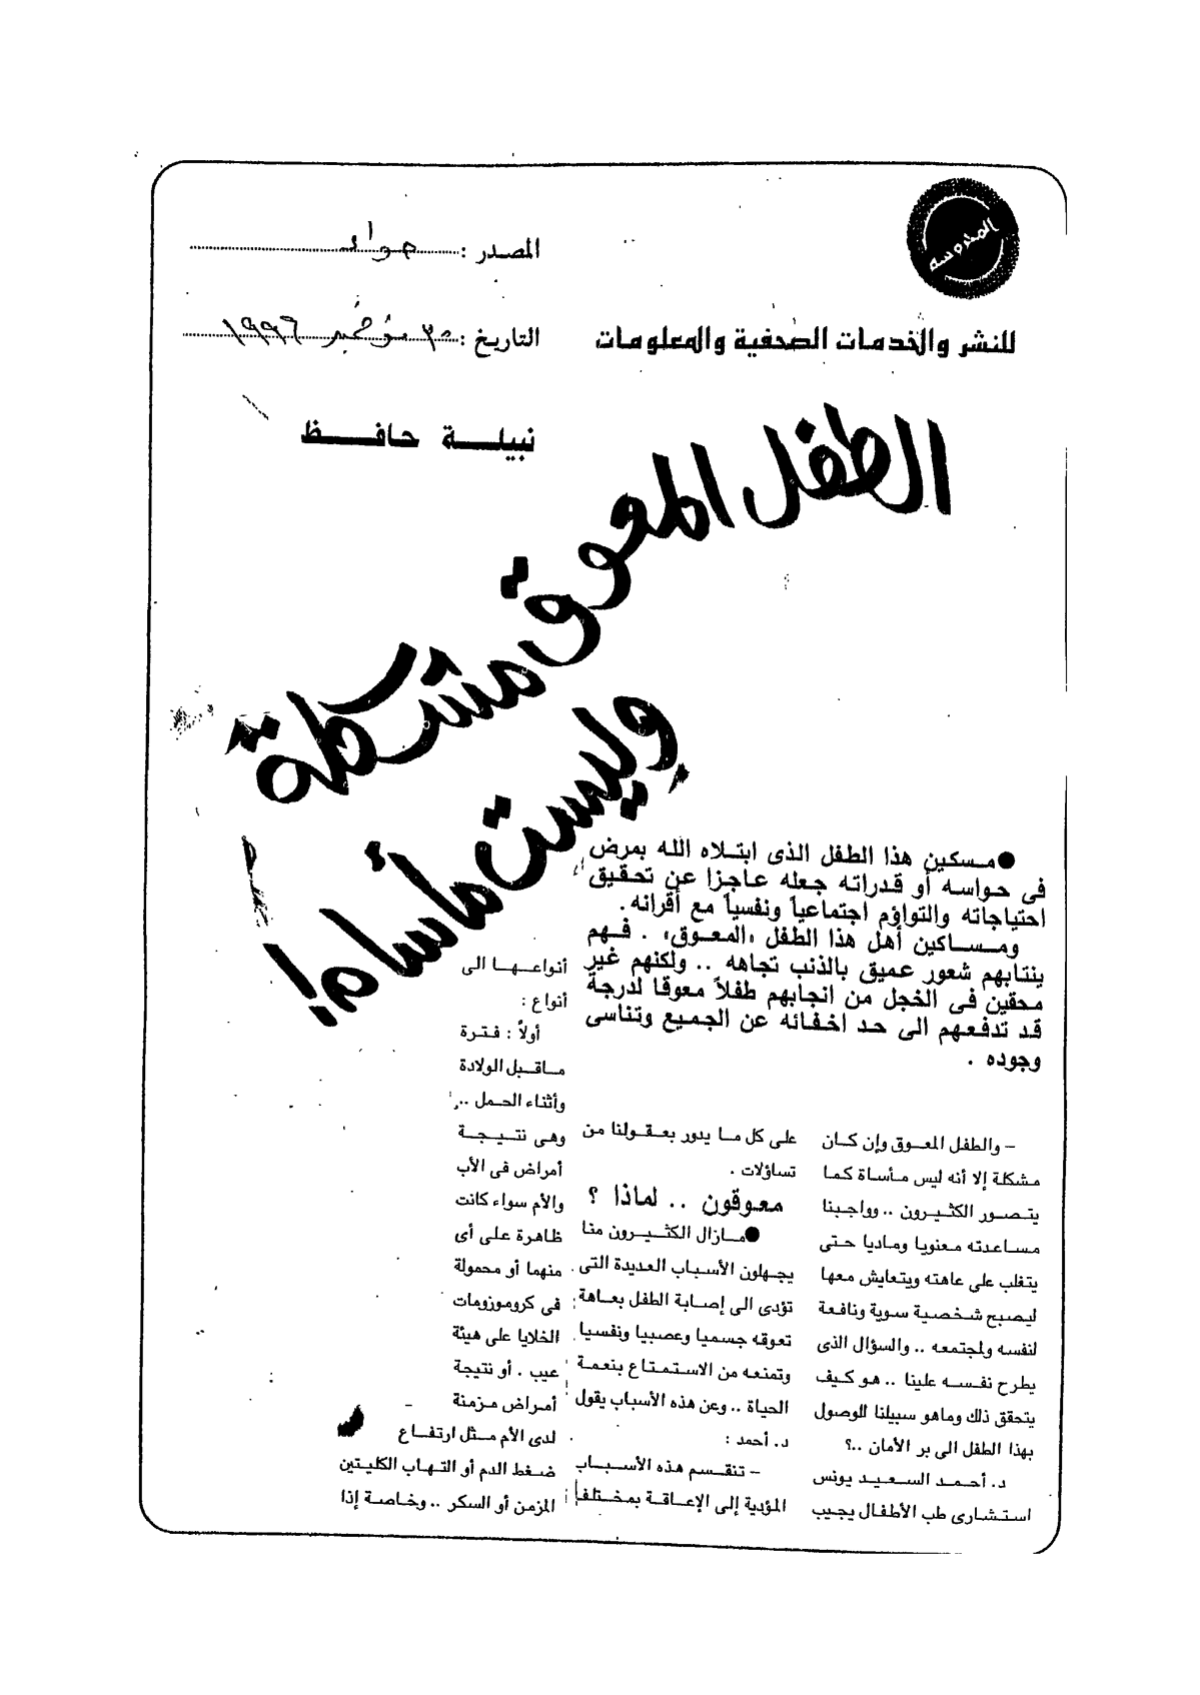 المدوسه
للنشر والخدمات الصحفية والمعلومات
المصدر : حواء
التاريخ : ٣٠ نوفمبر ١٩٩٦
نبيلة حافظ
الطفل المعوق مشكلة
وليست مأساه!
●مسكين هذا الطفل الذى ابتلاه الله بمرض
فى حواسه أو قدراته جعله عاجزا عن تحقيق
احتياجاته والتواؤم اجتماعياً ونفسياً مع أقرانه.
ومساكين أهل هذا الطفل «المعوق» . فهم
ينتابهم شعور عميق بالذنب تجاهه .. ولكنهم غير
محقين فى الخجل من انجابهم طفلاً معوقا لدرجة
قد تدفعهم الى حد اخفائه عن الجميع وتناسى
وجوده .
– والطفل المعوق وإن كان
مشكلة إلا أنه ليس مأساة كما
يتصور الكثيرون .. وواجبنا
مساعدته معنويا وماديا حتى
يتغلب على عاهته ويتعايش معها
ليصبح شخصية سوية ونافعة
لنفسه ولمجتمعه .. والسؤال الذى
يطرح نفسه علينا .. هو كيف
يتحقق ذلك وماهو سبيلنا للوصول
بهذا الطفل الى بر الأمان ..؟
د. أحمد السعيد يونس
استشارى طب الأطفال يجيب
على كل ما يدور بعقولنا من
تساؤلات .
معوقون .. لماذا ؟
●مازال الكثيرون منا
يجهلون الأسباب العديدة التى
تؤدى الى إصابة الطفل بعاهة
تعوقه جسميا وعصبيا ونفسيا
وتمنعه من الاستمتاع بنعمة
الحياة .. وعن هذه الأسباب يقول
د. أحمد :
– تنقسم هذه الأسباب
المؤدية إلى الإعاقة بمختلف
أنواعها الى
أنواع :
أولاً : فترة
ماقبل الولادة
وأثناء الحمل ..
وهى نتيجة
أمراض فى الأب
والأم سواء كانت
ظاهرة على أى
منهما أو محمولة
فى كروموزومات
الخلايا على هيئة
عيب . أو نتيجة
أمراض مزمنة
لدى الأم مثل ارتفاع
ضغط الدم أو التهاب الكليتين
المزمن أو السكر .. وخاصة إذا